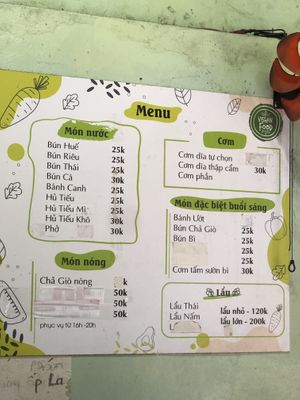 Menu
VEGAN
FOOD
Món nước
Bún Huế 25k
Bún Riêu 25k
Bún Thái 25k
Bún Cả 30k
Bánh Canh 25k
Hủ Tiếu 25k
Hủ Tiếu Mì 25k
Hủ Tiếu Khô 30k
Phở 30k
Món nóng
Chả Giò nóng k
50k
50k
50k
phục vụ từ 16h -20h
Cơm
Cơm dĩa tự chọn
Cơm dĩa thập cẩm 30k
Cơm phần
Món đặc biệt buổi sáng
Bánh Ướt
Bún Chả Giò 25k
Bún Bì 25k
25k
25k
Cơm tấm sườn bì 30k
Lẩu
Lẩu Thái
Lẩu Nấm
Lẩu
lẩu nhỏ - 120k
lẩu lớn - 200k